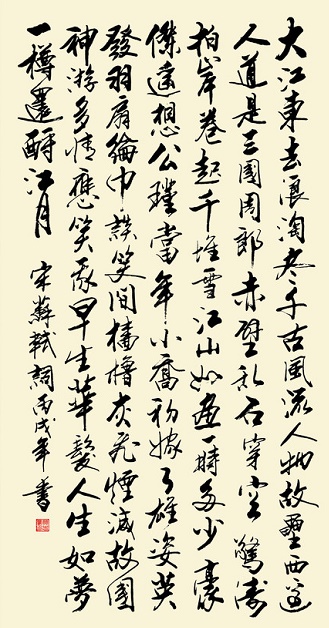 大江東去浪淘尽千古風流人物故壘西邊
人道是三國周郎赤壁乱石穿空驚濤
拍岸卷起千堆雪江山如畫一時多少豪
傑遙想公瑾當年小喬初嫁了雄姿英
發羽扇綸巾談笑間檣櫓灰飛煙滅故國
神游多情應笑我早生華髮人生如夢
一樽還酹江月 宋蘇軾詞丙戌年書